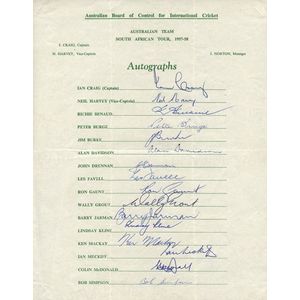 Australian Board of Control for International Cricket
AUSTRALIAN TEAM
SOUTH AFRICAN TOUR, 1957-58
I. CRAIG, Captain
N. HARVEY, Vice-Captain
J. NORTON, Manager
Autographs
IAN CRAIG (Captain) Ian Craig
NEIL HARVEY (Vice-Captain) Neil Harvey
RICHIE BENAUD R Benaud
PETER BURGE Peter Burge
JIM BURKE J Burke
ALAN DAVIDSON Alan Davidson
JOHN DRENNAN J Drennan
LES FAVELL Les Favell
RON GAUNT Ron Gaunt
WALLY GROUT Wally Grout
BARRY JARMAN Barry Jarman
LINDSAY KLINE Lindsay Kline
KEN MACKAY Ken Mackay
IAN MECKIFF Ian Meckiff
COLIN McDONALD
BOB SIMPSON Bob Simpson